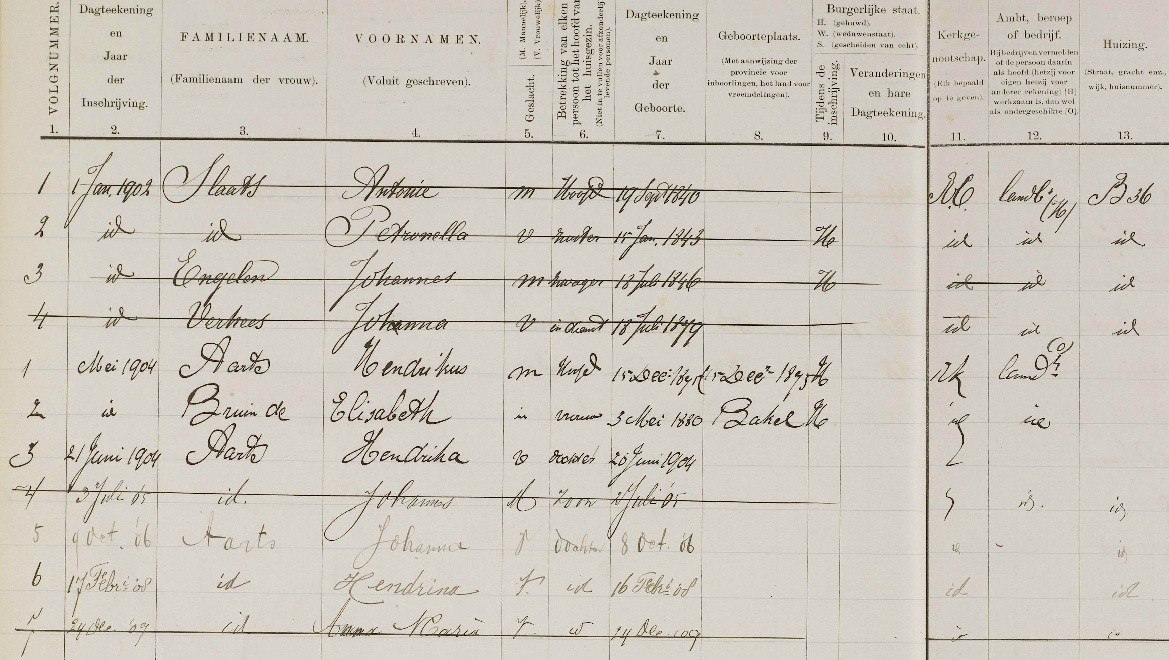 VOLGNUMMER.
Dagteekening
en
Jaar
der
Inschrijving.
FAMILIENAAM.
(Familienaam der vrouw).
VOORNAMEN.
(Voluit geschreven).
(M. Mannelijk).
(V. Vrouwelijk).
Geslacht.
Betrekking van elken
persoon tot het hoofd van
het huisgezin.
(Niet in te vullen voor afzonderlijk
levende personen).
Dagteekening
en
Jaar
der
Geboorte.
Geboorteplaats.
(Met aanwijzing der
provincie voor
inboorlingen, het land voor
vreemdelingen).
Burgerlijke staat.
H. (gehuwd).
W. (weduwenstaat).
S. (gescheiden van echt).
Tijdens de
inschrijving.
Veranderingen
en hare
Dagteekening.
Kerkge-
nootschap.
(Elk bepaald
op te geven).
Ambt, beroep
of bedrijf.
Bij bedrijven vermelden
of de persoon daarin
als hoofd (hetzij voor
eigen hetzij voor
anderer rekening) [H]
werkzaam is, dan wel
als ondergeschikte [O].
Huizing.
(Straat, gracht enz.,
wijk, huisnummer).
1. 2. 3. 4. 5. 6. 7. 8. 9. 10. 11. 12. 13.
1 1 Jan. 1902 Slaats Antonie m Hoofd 19 Sept 1840 RC. landb. (H) B 36
2 id id Petronella v zuster 15 Jan. 1843 H id id id
3 id Engelen Johannes m zwager 18 Juli 1846 H id id id
4 id Verhees Johanna v 18 Juli 1879 id id id
1 Mei 1904 Aarts Hendrikus m Hoofd 15 Dec. 1875 H RK land (O)
2 id Bruin de Elisabeth vrouw 3 Mei 1880 Bakel H
3 21 Juni 1904 Aarts Hendrika v 20 Juni 1904
4 3 Juli '05 id. Johannes M Zoon 2 Juli '05 id.
5 9 Oct. '06 Aarts Johanna V dochter 8 Oct. '06
6 17 Febr. '08 id Hendrina V. id 16 Febr. '08 id id
7 24 Dec. '09 id Anna Maria V. Dec. '09